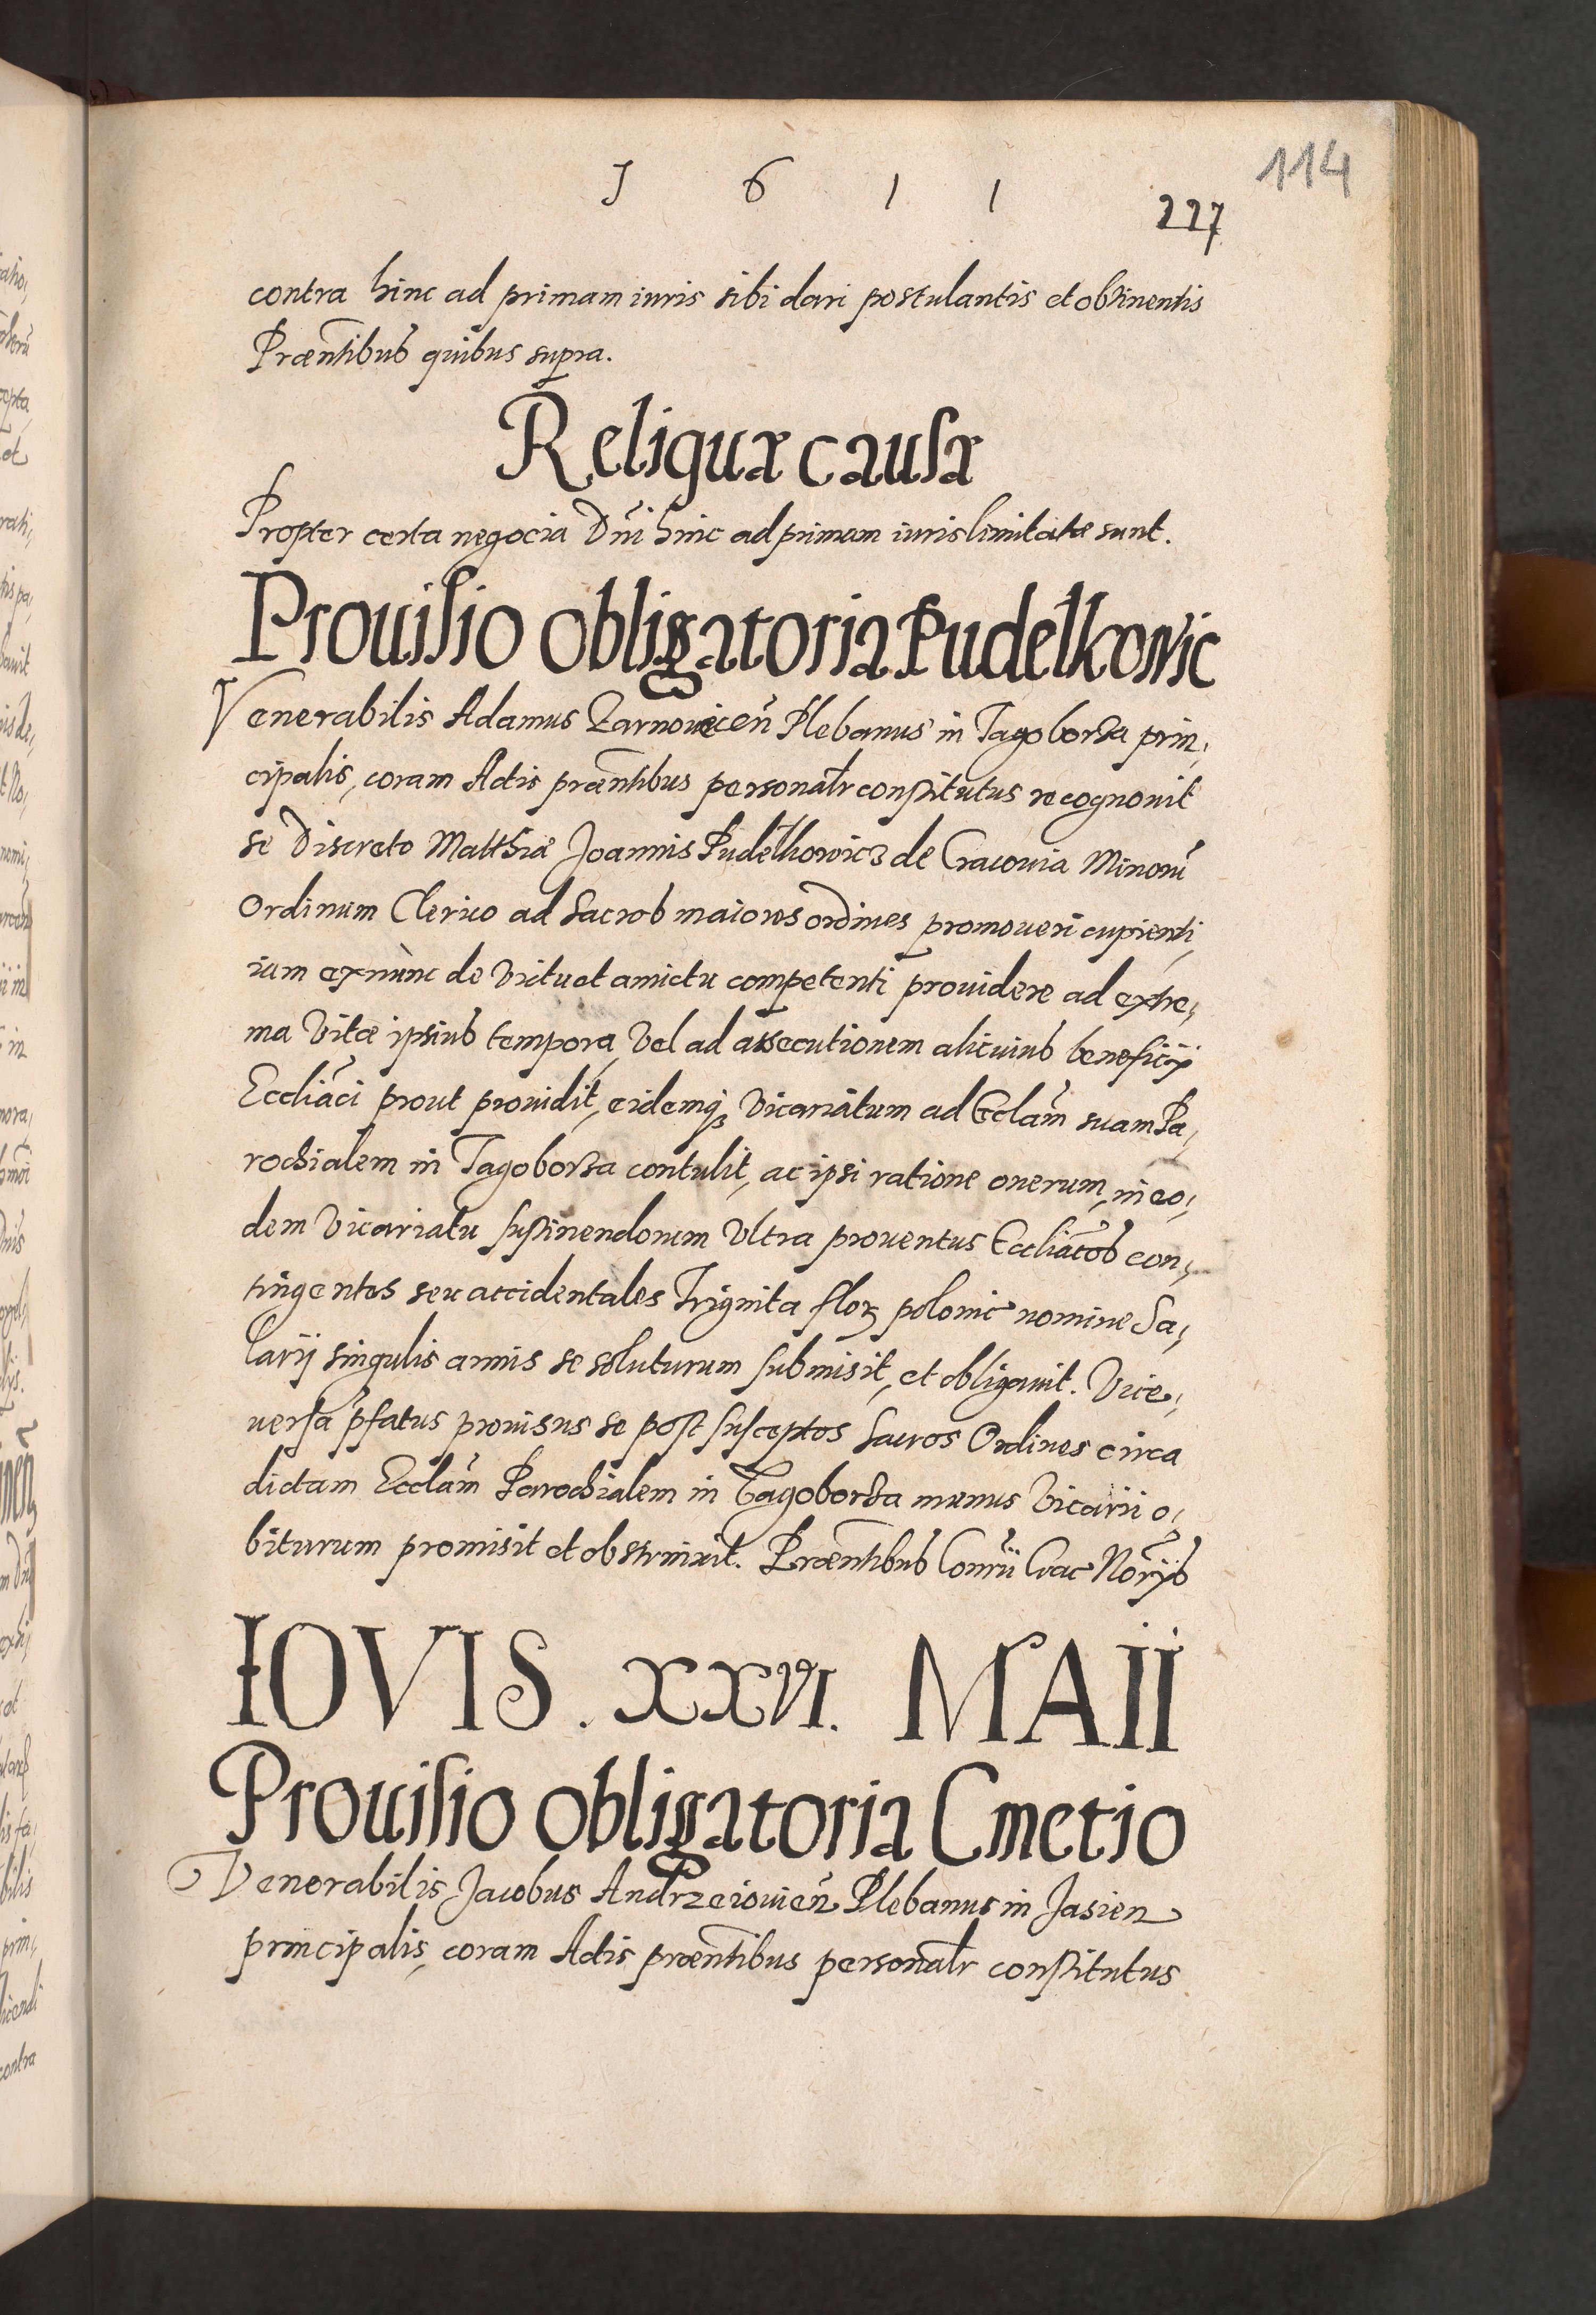 114
1 6 1 1
227
contra hinc ad primam iuris sibi dari postulantis et obtinentis
Præntibus quibus supra.
Reliquæ causæ
Propter certa negocia Dni hinc ad primam iuris limitatæ sunt.
Prouisio obligatoria Pudelkowic
Venerabilis Adamus Zarnowicen̄ Plebanus in Tagoborza prin,
cipalis, coram Actis præntibus personalr constitutus recognouit
se Discreto Matthiæ Joannis Pudełkowicz de Cracouia Minorū
Ordinum Clerico ad Sacros maiores ordines promoueri cupienti,
iam ex nunc de Victu et amictu competenti prouidere ad extre,
ma Vitæ ipsius tempora, Vel ad assecutionem alicuius beneficij
Eccliāci prout prouidit, eidemq; Vicariatum ad Ecclām suam Pa,
rochialem in Tagoborza contulit, ac ipsi ratione onerum, in eo,
dem Vicariatu sustinendorum Vltra prouentus Eccliācos con,
tingentes seu accidentales Triginta flor polonic nomine Sa,
larij singulis annis se soluturum submisit, et obligauit. Vice,
uersa pfatus prouisus se post susceptos Sacros Ordines circa
dictam Ecclām Parochialem in Tagoborza munus Vicarii o,
biturum promisit et obstrinxit. Præntibus Conrū Crac Norijs
IOVIS. XXVI. MAII
Prouisio obligatoria Cmetio
Venerabilis Jacobus Andrzeiouien̄ Plebanus in Jasien
principalis, coram Actis præntibus personalr constitutus